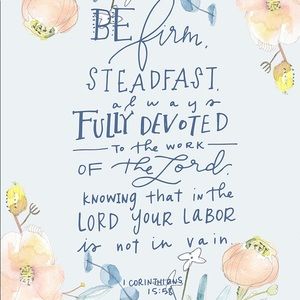 BE firm,
STEADFAST,
always
FULLY DEVOTED
TO the WORK
OF the Lord,
KNOWING THAT in the
LORD YOUR LABOR
is not in vain.
1 CORINTHIANS
15:58